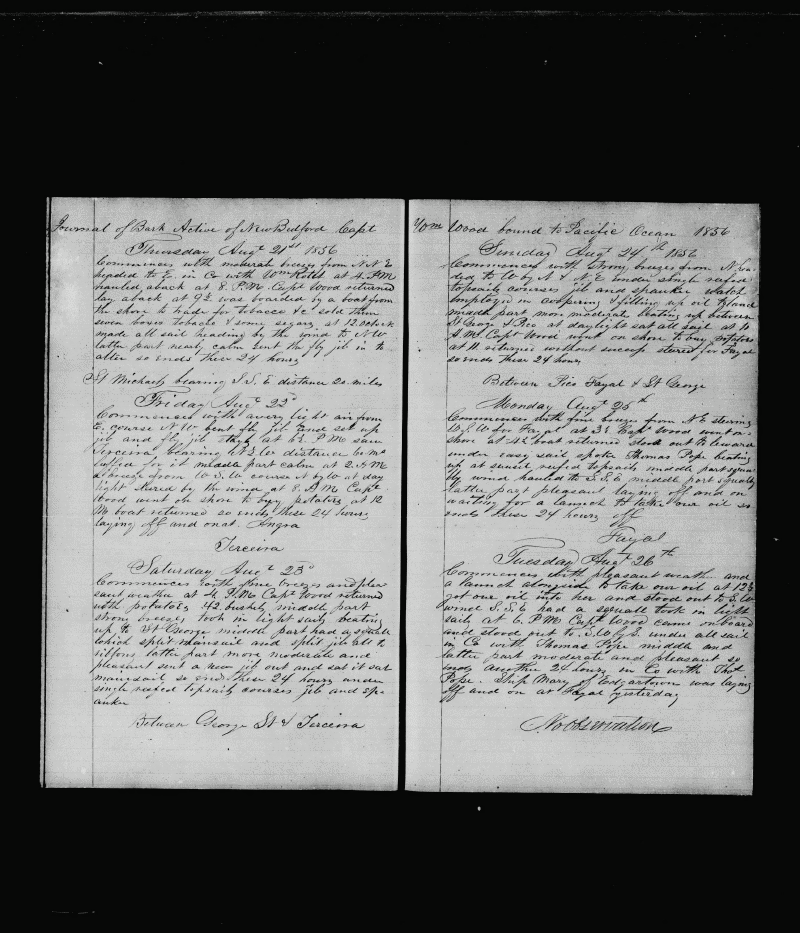 Journal of Bark Active of New Bedford Capt
Thursday Augt 21st 1856
Commences with moderate breezes from N N E
headed to E. in Co with Wm at 4. P.M
hauled aback at 8. P.M. Capt Wood returned
lay aback at 9½ was boarded by a boat from
the shore to trade for tobacco &c sold them
seven boxes tobacho & some segars at 12. oclock
made all sail heading by the wind to N. W
latter part nearly calm sent the fly jib in to
alter so ends these 24 hours
St Michaels bearing S. S. E distance 20 miles
Friday Augt 22d
Commences with a very light air from
E. course N. W. bent fly jib and set up
jib and fly jib at 6½ P. M saw
Terceira bearing distance 60 ms
luffed for it middle part calm at 2. A. M
a breeze from W S. W course N by W at day
light stered by the wind at 8. A. M Capt
Wood went on shore to buy potatoes at 12
M boat returned so ends these 24 hours
laying off and on at. Angra
Terceira
Saturday Augt 23d
Commences with fine breezes and plea
sant weather at 4. P. M. Capt Wood returned
with potatoes 42. bushels middle part
strong breezes took in light sails beating
up to St George middle part had a squall
which split mainsail and split jib all to
latter part more moderate and
pleasant sent a new jib out and sat it sat
mainsail so ends these 24 hours under
single reefed topsails courses jib and spa
anker
Between George St & Terceira
Wm Wood bound to Pacific Ocean 1856
Sunday Augt 24th 1856
Commences with strong breezes from N. hea
ded to W by N & N. E under single reefed
topsails courses jib and spanker watch
employed in coopering & filling up oil
middle part more moderate beating up between
St George & Pico at daylight sat all sail at 10
A. M. Capt Wood went on shore to buy potatoes
at 11 returned without success stered for Fayal
so ends these 24 hours
Between Pico Fayal & St George
Monday Augt 25th
Commences with fine breezes from N E steering
W. S. W for Fayal at 3½ Capt Wood went on
shore at 4½ boat returned stood out to leward
under easy sail spoke Thomas Pope beating
up at sunset reefed topsails middle part squa
lly wind hauled to S. S. E middle part squally
latter part pleasant laying off and on
waiting for a launch to take our oil so
ends these 24 hours off
Fayal
Tuesday Augt 26th
Commences with pleasant weather and
a launch alongside to take our oil at 12½
got our oil into her and stood out to S. W
wind S. S. E had a squall took in light
sails at 6. P. M Capt Wood came on board
and stood out to S. W by S. under all sail
in Co with Thomas Pope middle and
latter part moderate and pleasant so
ends another 24 hours in Co with Thos
Pope. Ship Mary of Edgartown was laying
off and on at Fayal yesterday
No observation